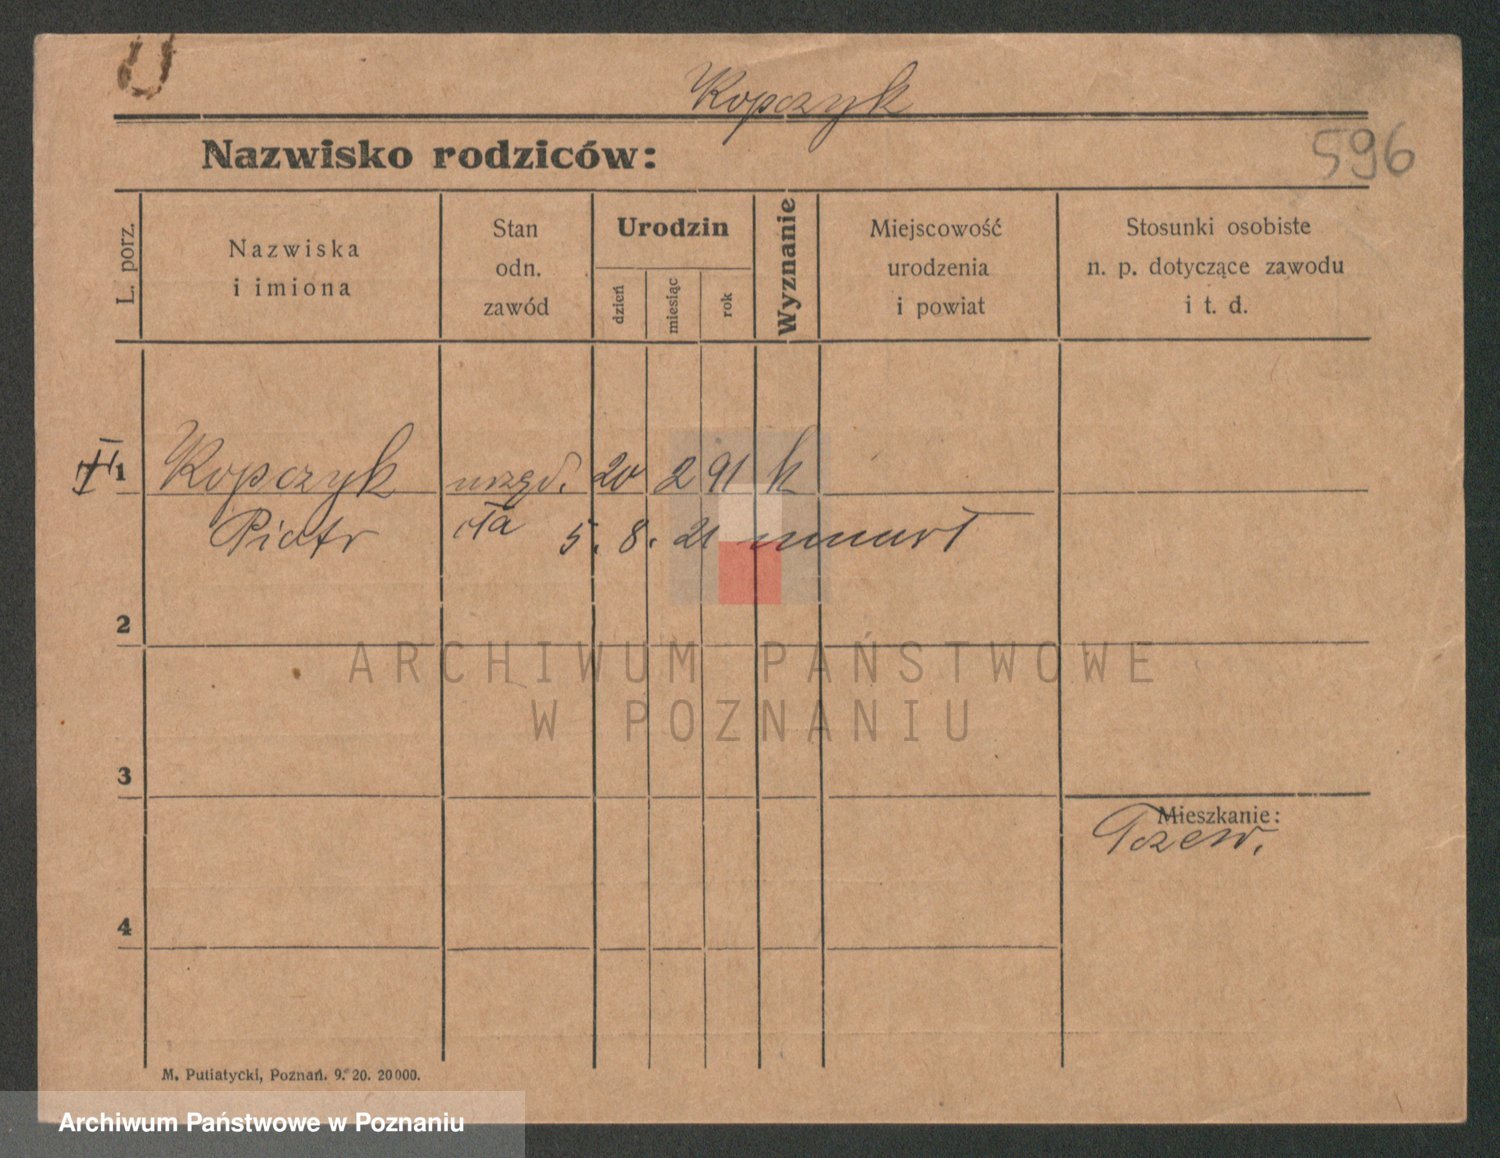 Kopczyk
596
Nazwisko rodziców:
L. porz.
Nazwiska
i imiona
Stan
odn.
zawód
Urodzin
dzień
miesiąc
rok
Wyznanie
Miejscowość
urodzenia
i powiat
Stosunki osobiste
n. p. dotyczące zawodu
i t. d.
1 Kopczyk 20 2 91 k
Piotr 5. 8. 21 umarł
2
3
Mieszkanie:
Tczew.
4
M. Putiatycki, Poznań. 9. 20. 20000.
ARCHIWUM PAŃSTWOWE
W POZNANIU
Archiwum Państwowe w Poznaniu